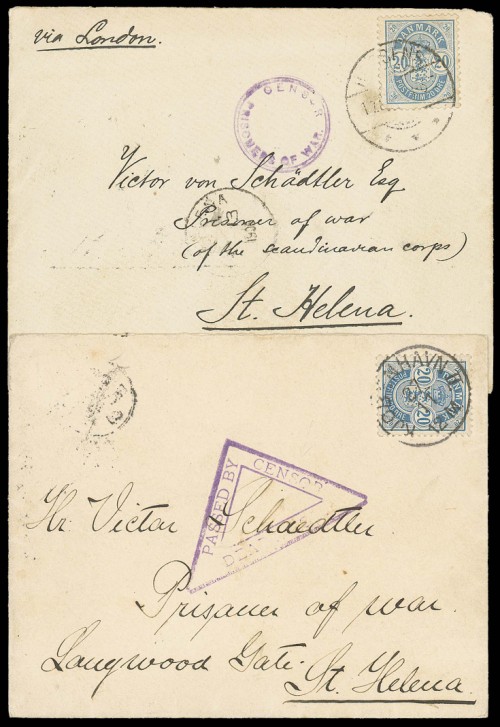 via London.
DANMARK
20 20
POSTFRIM. 20 ØRE
CENSOR
PRISONERS OF WAR.
Victor von Schädtler Esq
Prisoner of war
(of the scandinavian corps)
St. Helena.
KJØBENHAVN
DANMARK
20 20
PASSED BY
CENSOR
Hr. Victor Schaedtler.
Prisoner of war.
Longwood Gate.
St. Helena.